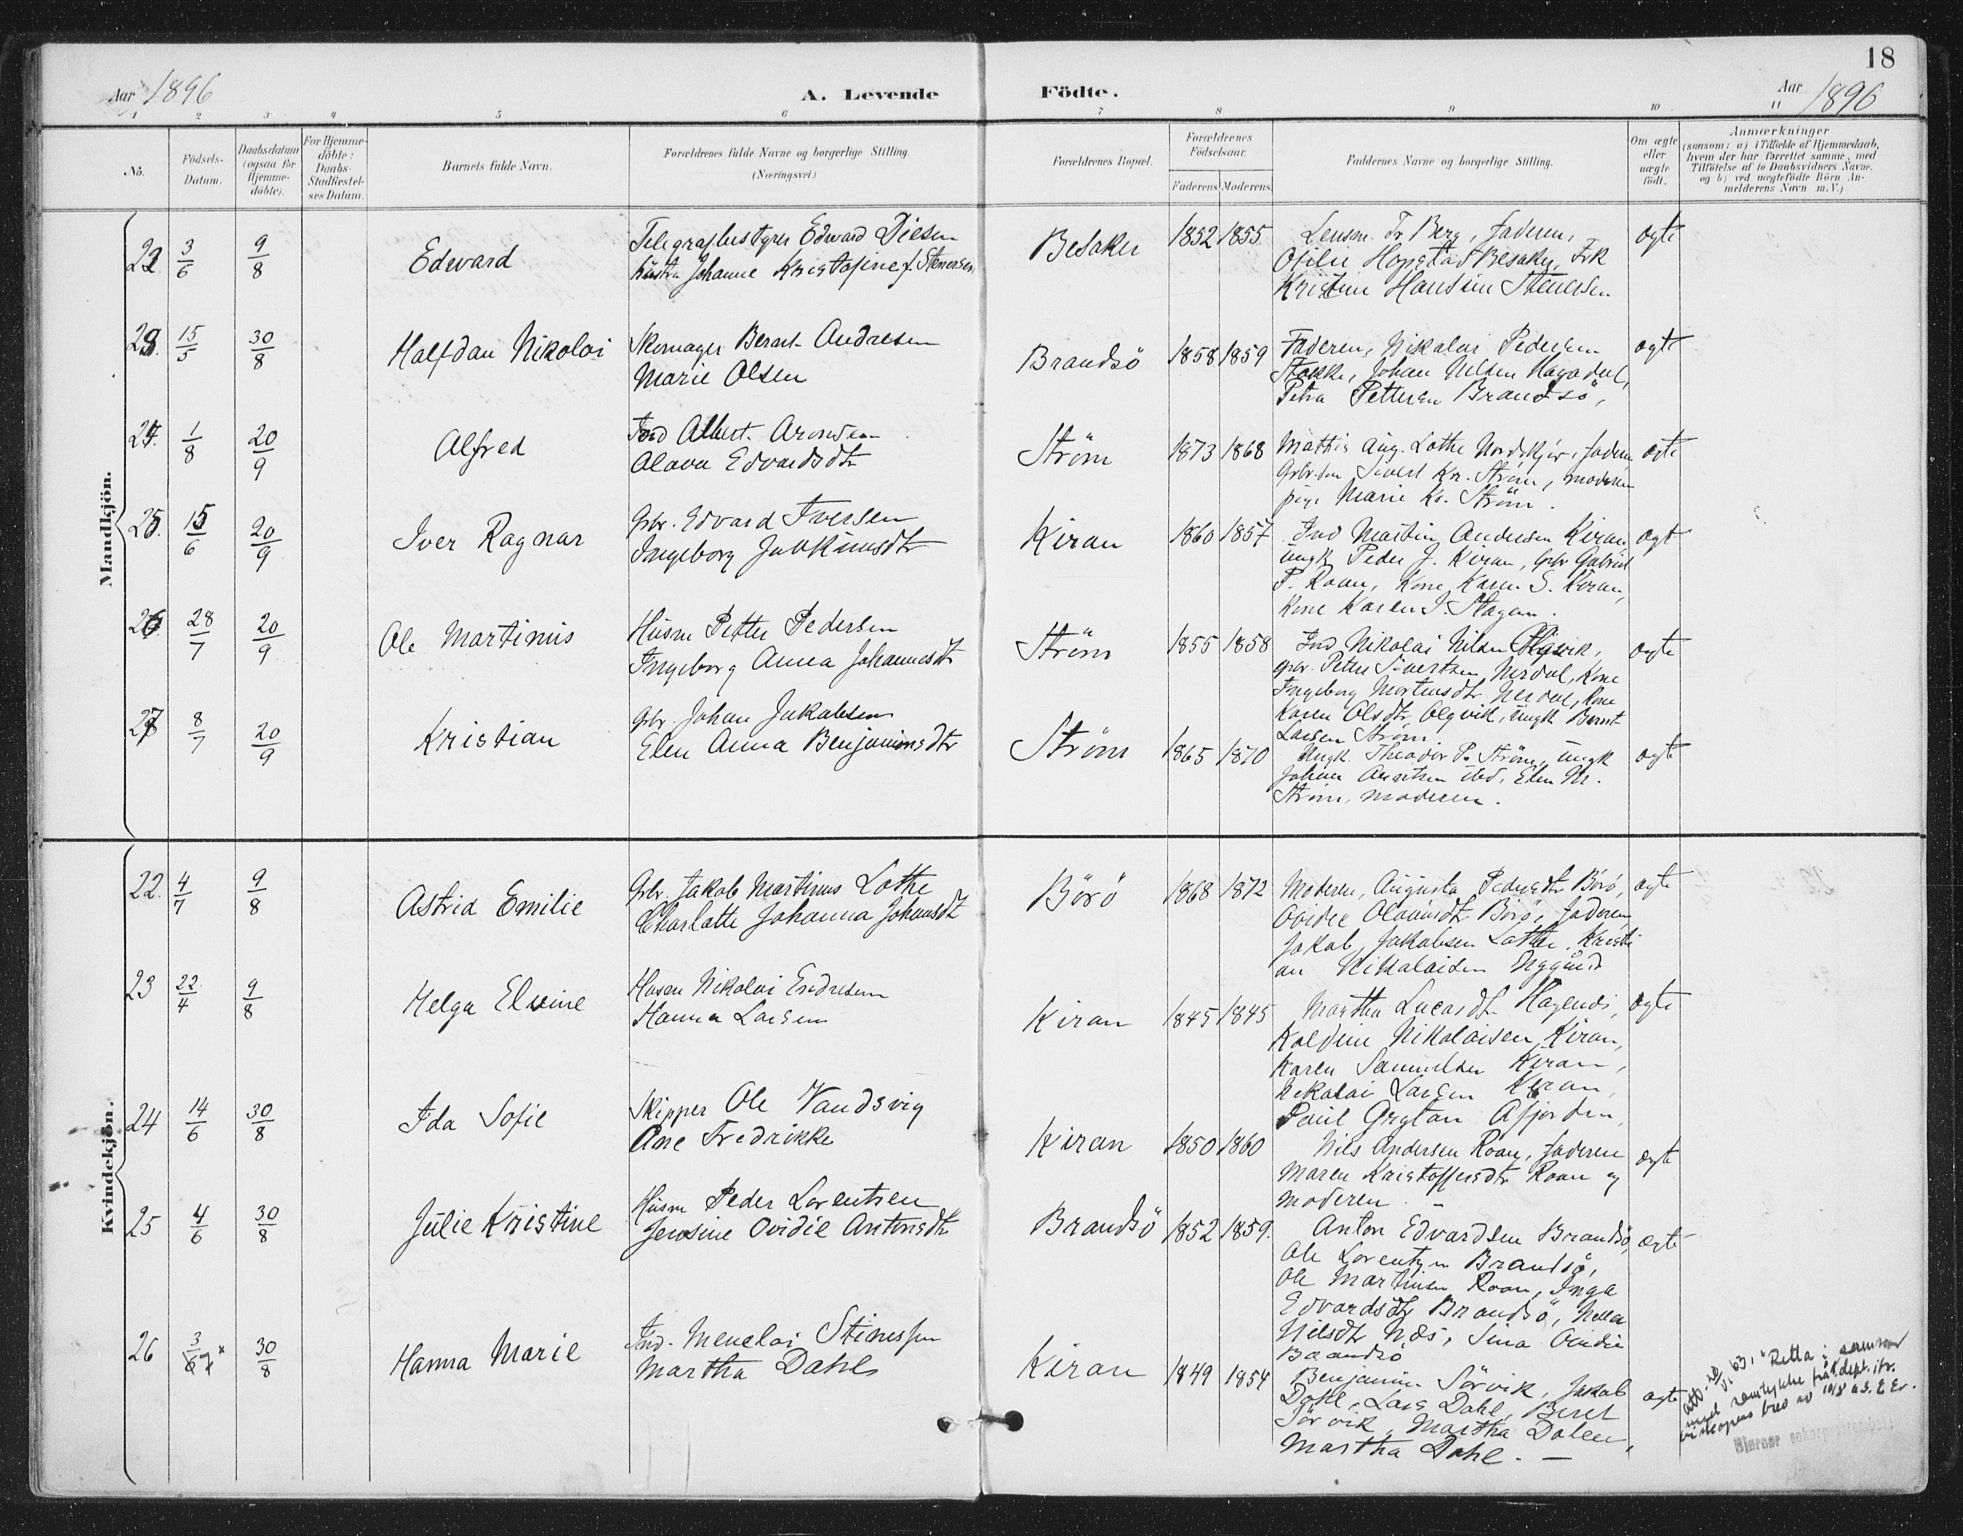 18
Aar 1896
A. Levende
Födte.
Aar 1896
1 2 3 4 5 6 7 8 9 10 11
No.
Födsels-Datum.
Daabsdatum (ogsaa for Hjemme-döbte).
For Hjemme-döbte: Daabs-Stadfestel-ses Datum.
Barnets fulde Navn.
Forældrenes fulde Navne og borgerlige Stilling. (Næringsvei.)
Forældrenes Bopæl.
Forældrenes Födselsaar.
Faderens. Moderens.
Faddernes Navne og borgerlige Stilling.
Om ægte eller uægte födt.
Anmærkninger
(saasom: a) i Tilfælde af Hjemmedaab,
hvem der har forrettet samme, med
Tilföielse af to Daabsvidners Navne.
og b) ved uægtefödte Börn An-
melderens Navn m.V.)
Mandkjön.
22. 3/6 9/8 Edvard
Telegrafbestyrer Edvard Diesen
hustru Johanne Kristofine f. Stenersen
Besaker 1852 1855
Lensm. Fr Berg, faderen,
Ofilie Hopstad Besaker, Frk
Kristine Hansine Stenersen
ægte
23. 15/5 30/8 Halfdan Nikolai
Skomager Bernt Andresen
Marie Olsen
Brandsö 1858 1859
Faderen, Nikolai Pedersen
Stokke, Johan Nilsen
Petra Pettersen Brandsö,
ægte
24. 1/8 20/9 Alfred
Ind Albert Arondsen
Olava Edvardsdtr
Ström 1873 1868
Mathis Aug. Lothe Nordskjör, faderen
Gbr.søn Sivert Kr. Ström, moderen
pige Marie Kr. Ström.
ægte
25. 15/6 20/9 Iver Ragnar
Gbr. Edvard Iversen
Ingeborg Joakimsdtr
Kiran 1860 1857
Ind Martin Andersen Kiran,
ungk Peder J. Kiran, Gbr Gabriel
P. Roan, Kone Karen S. Kiran,
Kone Karen J. Hagen.
ægt
26. 28/7 20/9 Ole Martinus
Husm Petter Pedersen
Ingeborg Anna Johannesdtr
Ström 1855 1858
Ind Nikolai Nilsen Olgvik,
gbr. Petter Sivertsen, Nerdal, Kone
Ingeborg Mortensdtr Nerdal, Kone
Karen Olsdtr Olgvik, ungk Bernt
Larsen Ström
ægte
27. 8/7 20/9 Kristian
Gbr. Johan Jakobsen
Elen Anna Benjaminsdtr
Ström 1865 1870
Ungk. Theodor P. Ström, ungk
Johan Arentsen ibd, Elen M.
Ström, moderen.
ægte
Kvindekjön.
22. 4/7 9/8 Astrid Emilie
Gbr. Jakob Martinus Lothe
Charlotte Johanna Johansdtr
Börö 1868 1872
Moderen, Augusta Pedersdtr Börö,
Ovidee Olavusdtr Börö, faderen,
Jakob Jakobsen Lothe, Kristi
an Nikolaisen
ægte
23 22/4 9/8 Helga Elvine
Husm Nikolai Endresen
Hanna Larsen
Kiran 1845 1845
Martha Lucasdtr
Koldine Nikolaisen Kiran,
Karen Samuelsen Kiran,
Nikolai Larsen Kiran,
Paul Grytan Afjorden,
ægte
24 14/6 30/8 Ida Sofie
Skipper Ole Vandsvig
Ane Fredrikke
Kiran 1850 1860
Nils Andersen Roan, faderen
Maren Kristoffersdtr Roan og
moderen.
ægte
25 4/6 30/8 Julie Kristine
Husm Peder Lorentsen
Jensine Ovidie Antonsdtr
Brandsö 1852 1859.
Anton Edvardsen Brandsö,
Ole Lorentzen Brandsö,
Ole Martinsen Roan, Inga
Edvardsdtr Brandsö, Nella
Nilsdtr Næs, Sina Ovidie
Brandsö
ægte
26 3/6 7* 30/8 Hanna Marie
Ind. Menelai Stinessen
Martha Dahl
Kiran 1849 1854
Benjamin Sörvik, Jakob
Dahl, Lars Dahl, Beret
Sörvik, Martha Dalen,
Martha Dahl. —
ægte
"Retta i samsvar
med samtykke frå K.dept. jfr.
biskopens brev av 10/8 63. E Er.